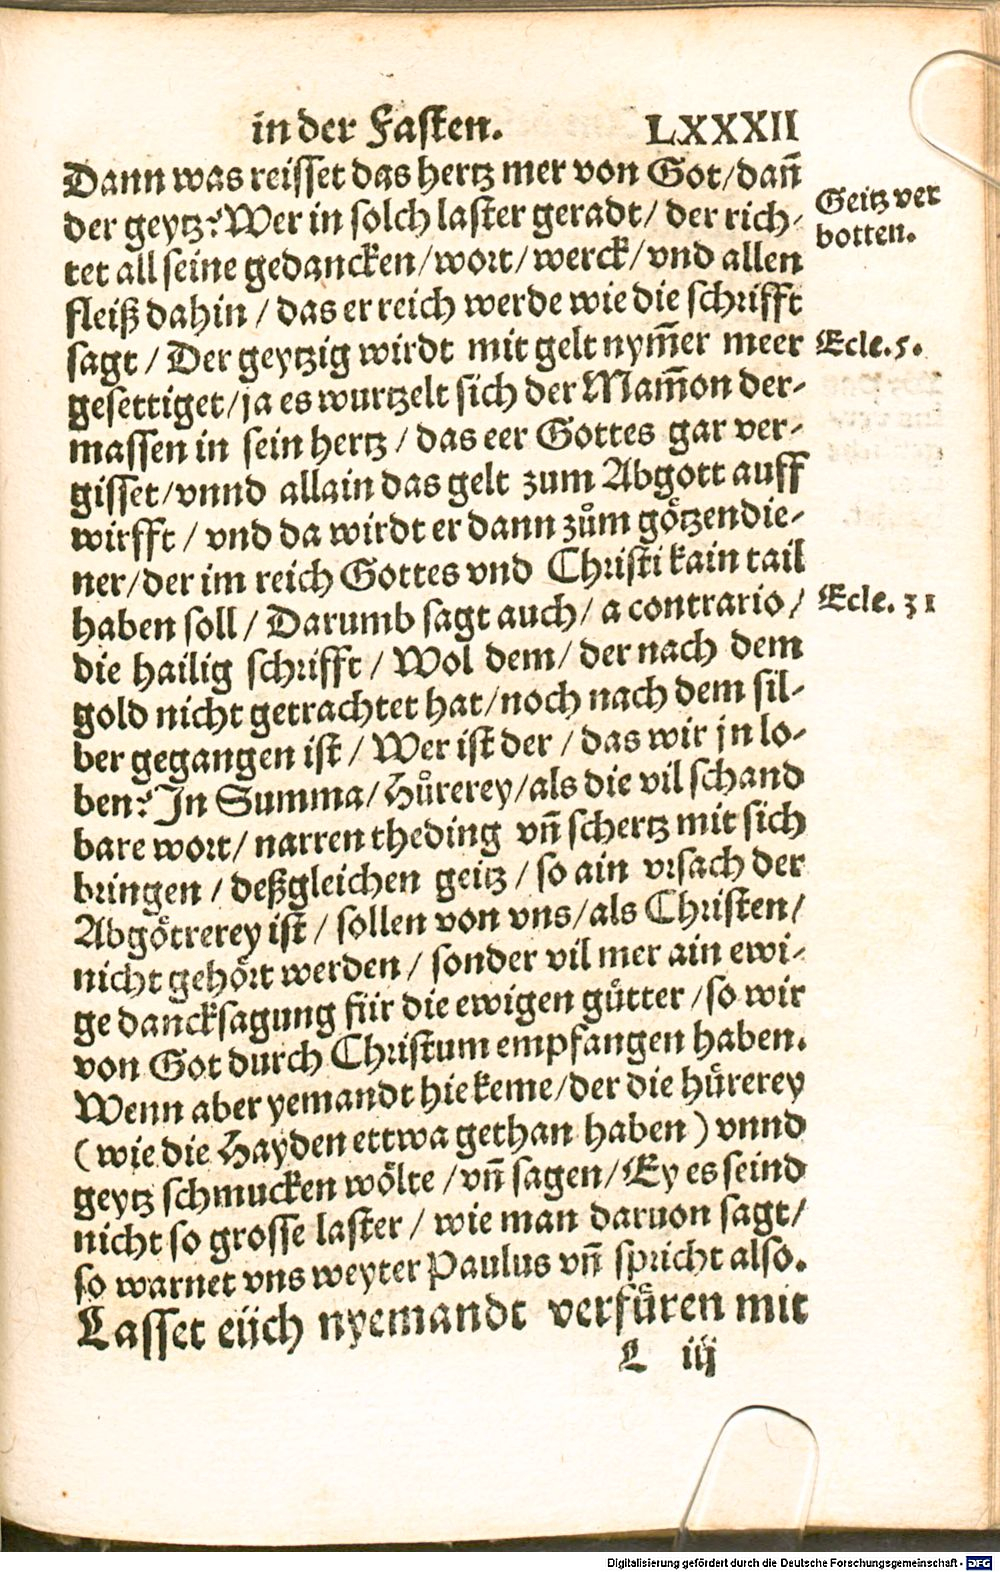 in der Fasten. LXXXII
Dann was reisset das hertz mer von Got/dañ
der geytz? Wer in solch laster geradt/ der rich-
tet all seine gedancken/wort/werck/vnd allen
fleiß dahin / das er reich werde wie die schrifft
sagt / Der geytzig wirdt mit gelt nym̃er meer
gesettiget/ja es wurtzelt sich der Mam̃on der-
massen in sein hertz / das eer Gottes gar ver-
gisset/vnnd allain das gelt zum Abgott auff
wirfft / vnd da wirdt er dann zům götzendie-
ner/der im reich Gottes vnd Christi kain tail
haben soll / Darumb sagt auch/ a contrario /
die hailig schrifft / Wol dem/ der nach dem
gold nicht getrachtet hat/noch nach dem sil-
ber gegangen ist / Wer ist der / das wir jn lo-
ben? In Summa/ Hůrerey/als die vil schand
bare wort/ narren theding vñ schertz mit sich
bringen / deßgleichen geitz / so ain vrsach der
Abgötrerey ist / sollen von vns/als Christen/
nicht gehört werden / sonder vil mer ain ewi-
ge dancksagung für die ewigen gůtter /so wir
von Got durch Christum empfangen haben.
Wenn aber yemandt hie keme/der die hůrerey
(wie die Hayden ettwa gethan haben) vnnd
geytz schmucken wölte /vñ sagen/ Ey es seind
nicht so grosse laster / wie man daruon sagt/
so warnet vns weyter Paulus vñ spricht also.
Lasset eüch nyemandt verfüren mit
L iij
Geitz ver
botten.
Ecle. 5.
Ecle. 31
Digitalisierung gefördert durch die Deutsche Forschungsgemeinschaft - DFG